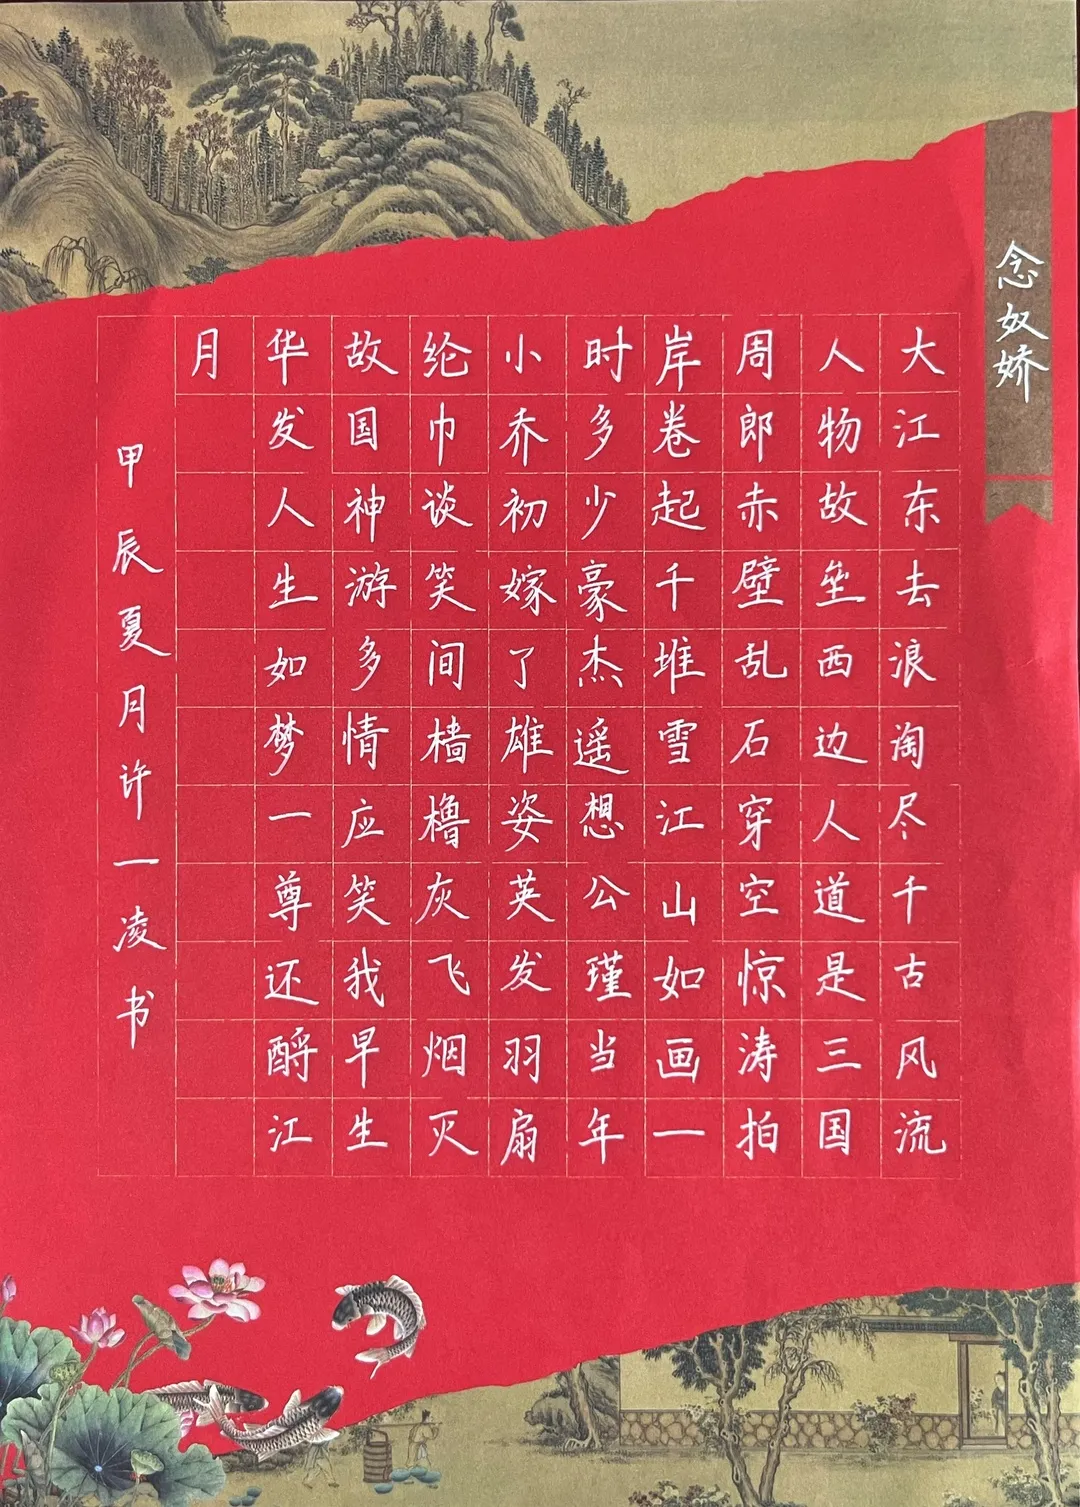 念奴娇
大江东去浪淘尽千古风流
人物故垒西边人道是三国
周郎赤壁乱石穿空惊涛拍
岸卷起千堆雪江山如画一
时多少豪杰遥想公瑾当年
小乔初嫁了雄姿英发羽扇
纶巾谈笑间樯橹灰飞烟灭
故国神游多情应笑我早生
华发人生如梦一尊还酹江
月
甲辰夏月许一凌书